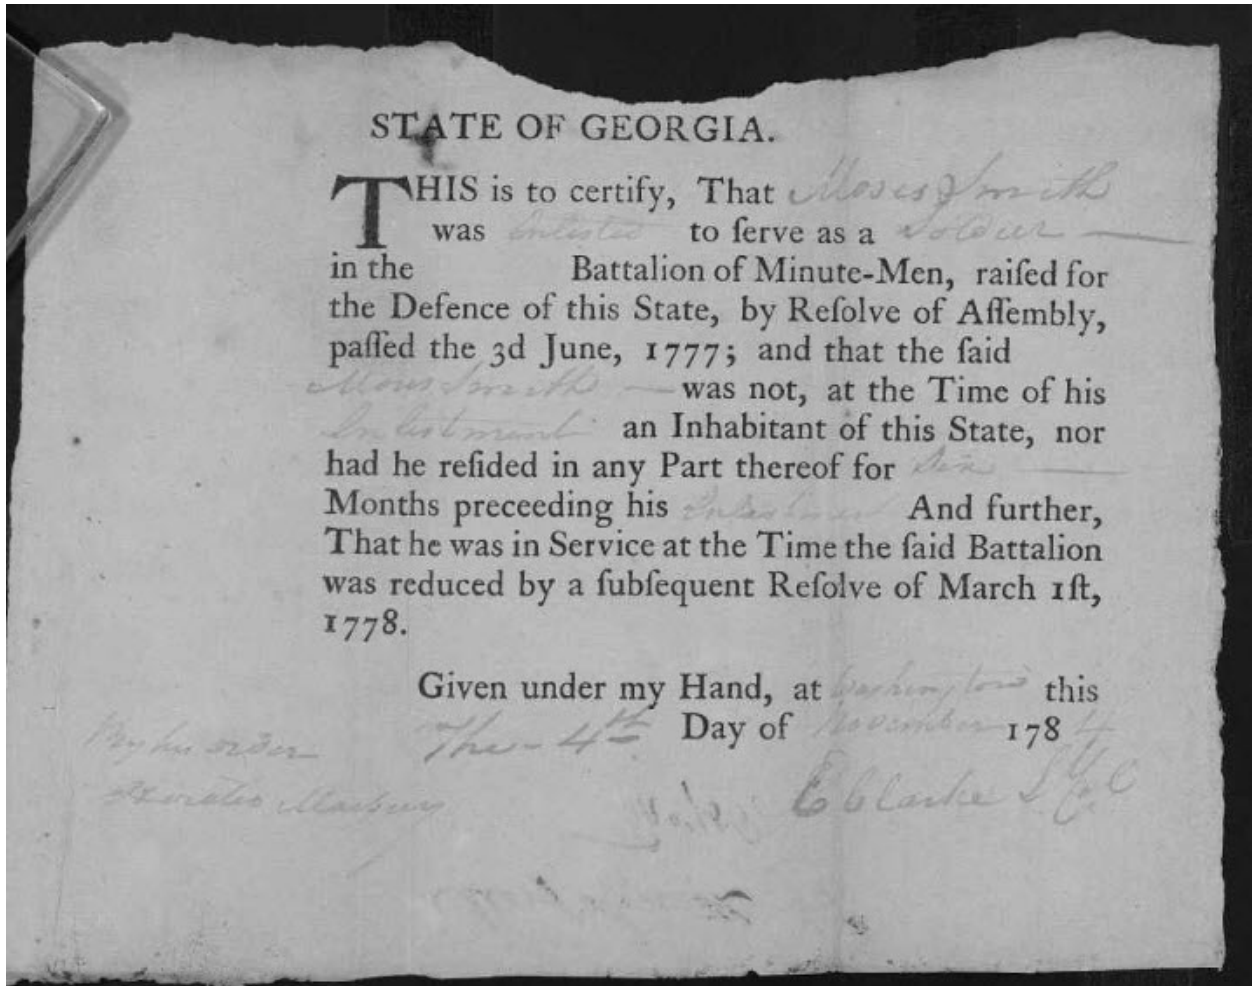 STATE OF GEORGIA.
THIS is to certify, That Moses Smith
was Enlisted to ſerve as a Soldier —
in the Battalion of Minute-Men, raiſed for
the Defence of this State, by Reſolve of Aſſembly,
paſſed the 3d June, 1777; and that the ſaid
Moses Smith — was not, at the Time of his
Enlistment an Inhabitant of this State, nor
had he reſided in any Part thereof for Six —
Months preceeding his Enlistment And further,
That he was in Service at the Time the ſaid Battalion
was reduced by a ſubſequent Reſolve of March 1ſt,
1778.
Given under my Hand, at Washington this
The - 4th Day of November 1784
By his order
E Clarke
Horatio Marbury